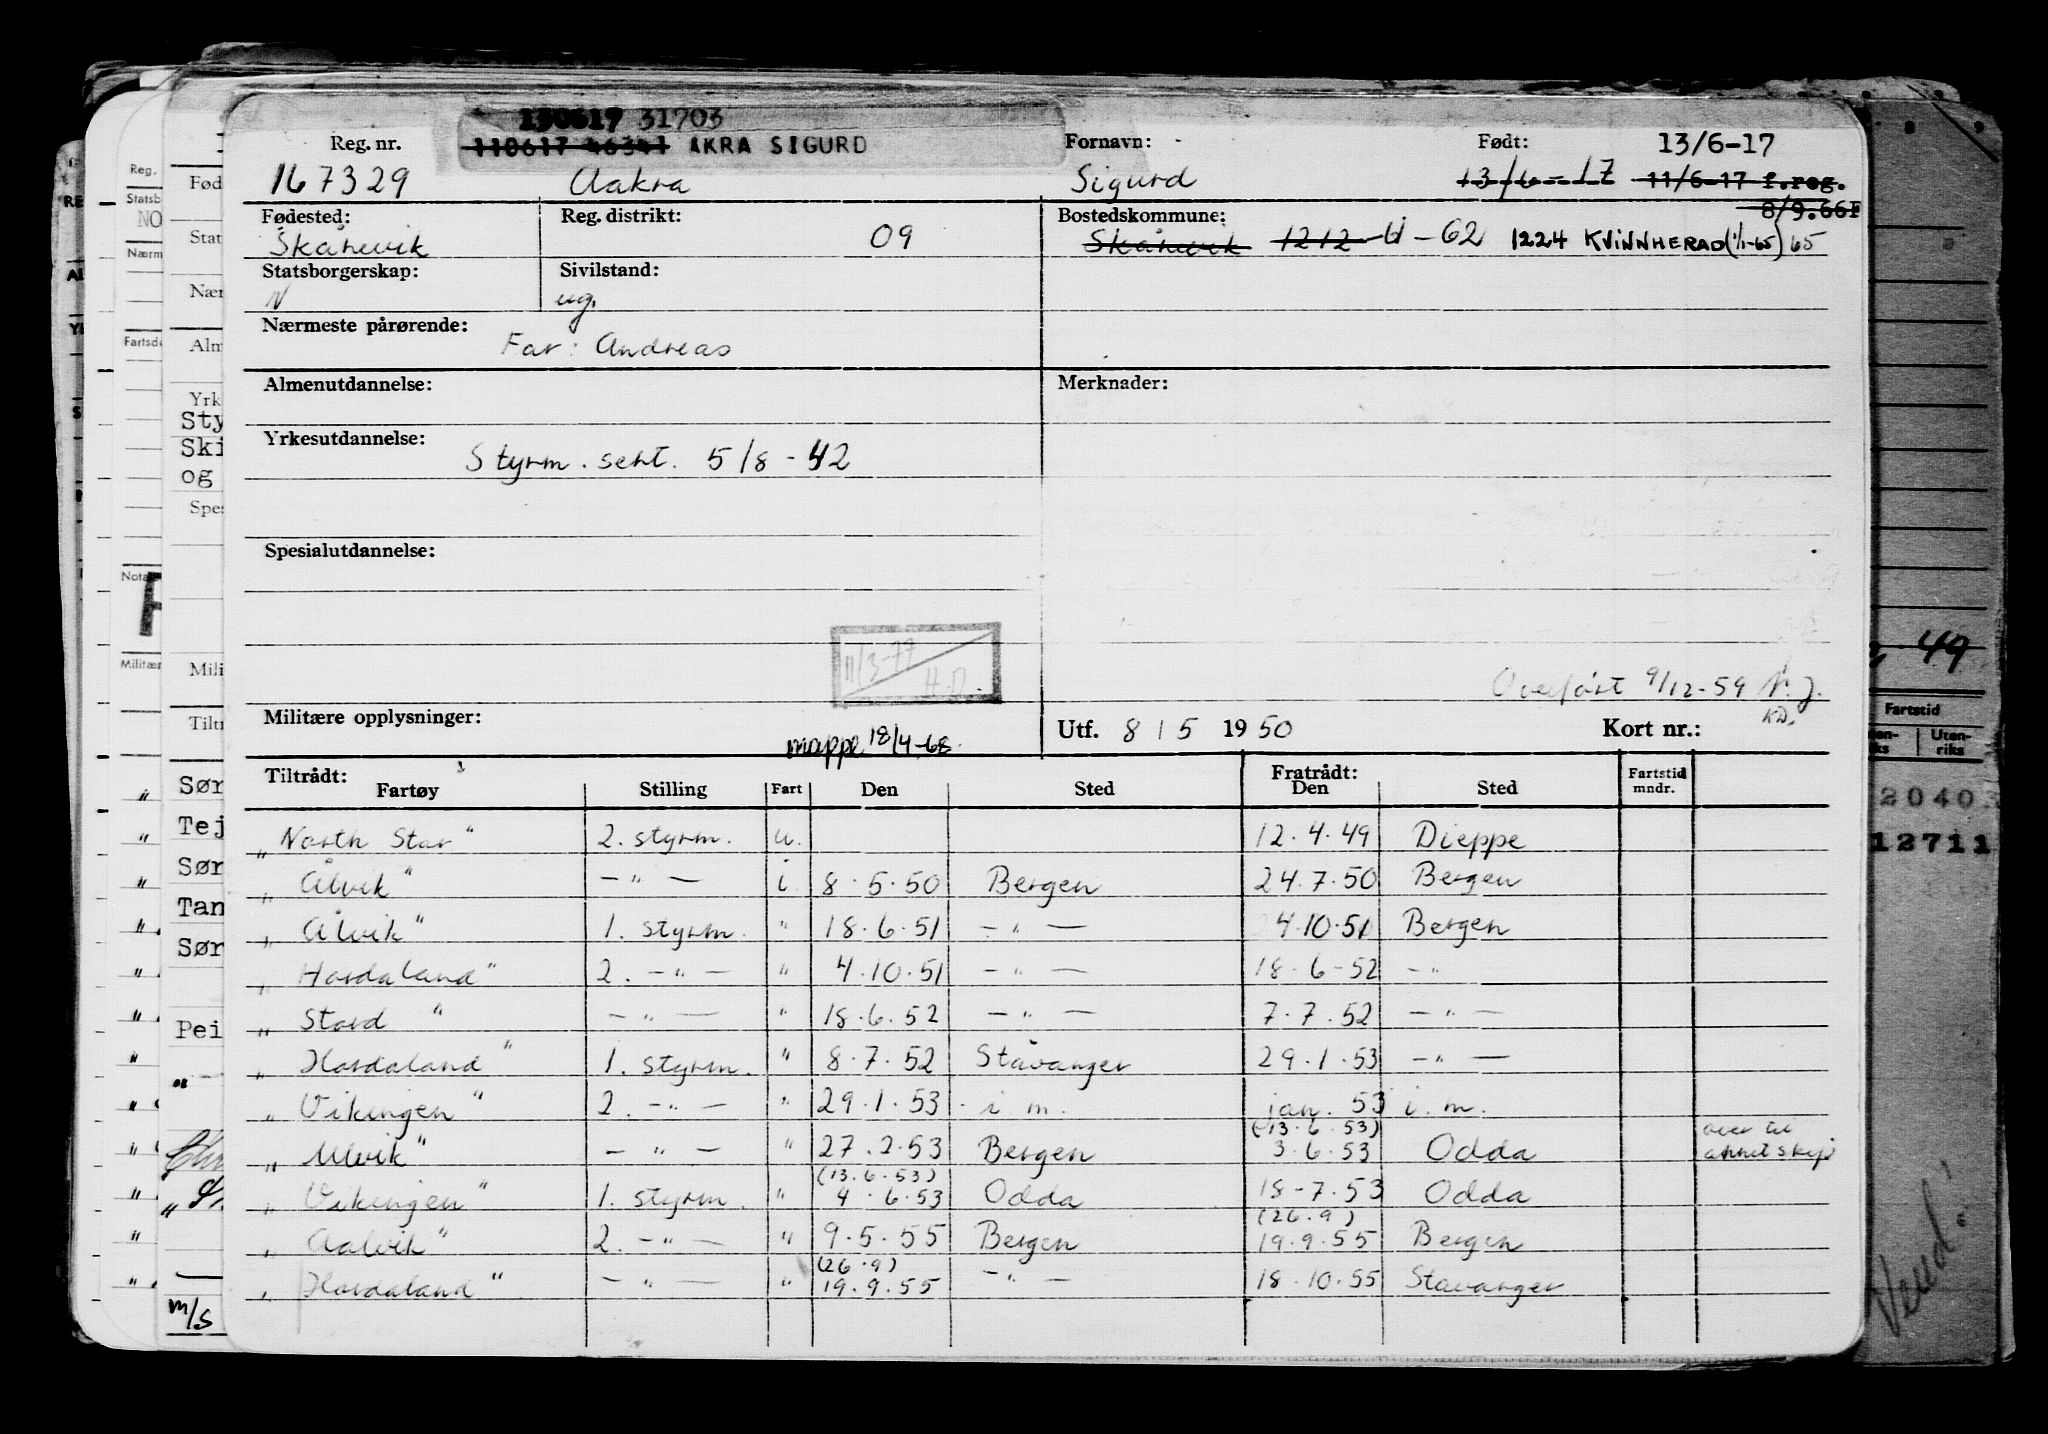 130617 31703
Reg. nr. 110617 46341 AKRA SIGURD Fornavn: Født: 13/6-17
167329 Aakra Sigurd 13/6-17 11/6-17 f.reg.
8/9.66F
Fødested: Reg. distrikt: Bostedskommune:
Skånevik 09 Skånevik 1212-U-62 1224 KVINNHERAD (1/1-65) 65
Statsborgerskap: Sivilstand:
N ug.
Nærmeste pårørende:
Far: Andreas
Almenutdannelse: Merknader:
Yrkesutdannelse:
Styrm. sert. 5/8-42
Spesialutdannelse:
11/3-77
H.D.
Overført 9/12-59 N.J.
KD.
Militære opplysninger: Utf. 8/5 1950 Kort nr.:
mappe 18/4-68.
Tiltrådt: Fratrådt: Fartstid
Fartøy Stilling Fart Den Sted Den Sted mndr.
„North Star" 2. styrm. u. 12.4.49 Dieppe
„Ålvik" -"- i 8.5.50 Bergen 24.7.50 Bergen
„Ålvik" 1. styrm. " 18.6.51 -"- 4.10.51 Bergen
„Hordaland" 2. -"- " 4.10.51 -"- 18-6-52 -"
„Stord" -"- " 18.6.52 -"- 7.7.52 -"-
„Hordaland" 1. styrm. " 8.7.52 Stavanger 29.1.53 -"-
„Vikingen" 2. -"- " 29.1.53 i.m. jan. 53 i.m.
(13.6.53) over til
„Ulvik" -"- " 27.2.53 Bergen 3.6.53 Odda annet skip
(13.6.53)
„Vikingen" 1. styrm. " 4.6.53 Odda 18-7.53 Odda
(26.9)
„Aalvik" 2. -"- " 9.5.55 Bergen 19.9.55 Bergen
(26.9)
„Hordaland" -"- " 19.9.55 -"- 18.10.55 Stavanger
Reg.
Statsb
NO
Nærm
Fartsd
Nota
Militær
Fød
Stat
Nær
Alm
Yrk
Sty
Ski
og
Spe
Mili
Tiltr
Sør
Tej
Sør
Tan
Sør
Pei
m/s
49
Fartstid
Uten-
riks
12711
Vend!